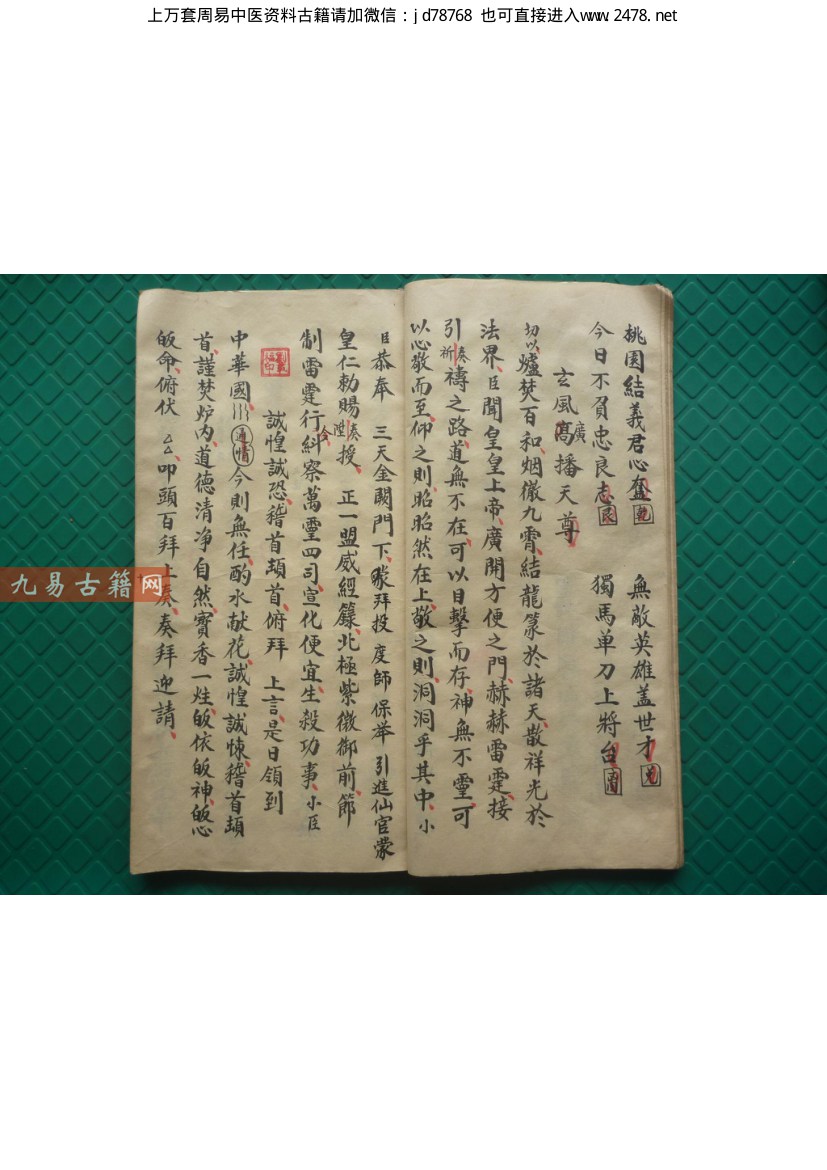 上万套周易中医资料古籍请加微信：jd78768 也可直接进入www.2478.net
桃園結義君心奮乾 無敵英雄盖世才
今日不負忠良志艮 獨馬单刀上將台
玄風高播天尊
廣
切以爐焚百和烟徹九霄結龍篆於諸天散祥光於
法界臣聞皇皇上帝廣開方便之門赫赫雷霆接
引奏祈禱之路道無不在可以目擊而存神無不靈可
以心敬而至仰之則昭昭然在上敬之則洞洞乎其中小
臣恭奉 三天金闕門下拜投度師保举引進仙官蒙
皇仁勅賜奏陞授 正一盟威經籙北極紫微御前節
制雷霆行糾察萬靈四司宣化便宜生殺功事小臣
令
誠惶誠恐稽首頡首俯拜 上言是日領到
中華國通情今則無任酌水献花誠惶誠悚稽首頡
首謹焚炉内道德清净自然寳香一炷皈依皈神皈心
皈命俯伏 厶厶叩頭百拜上奏奏拜迎請
九易古籍网